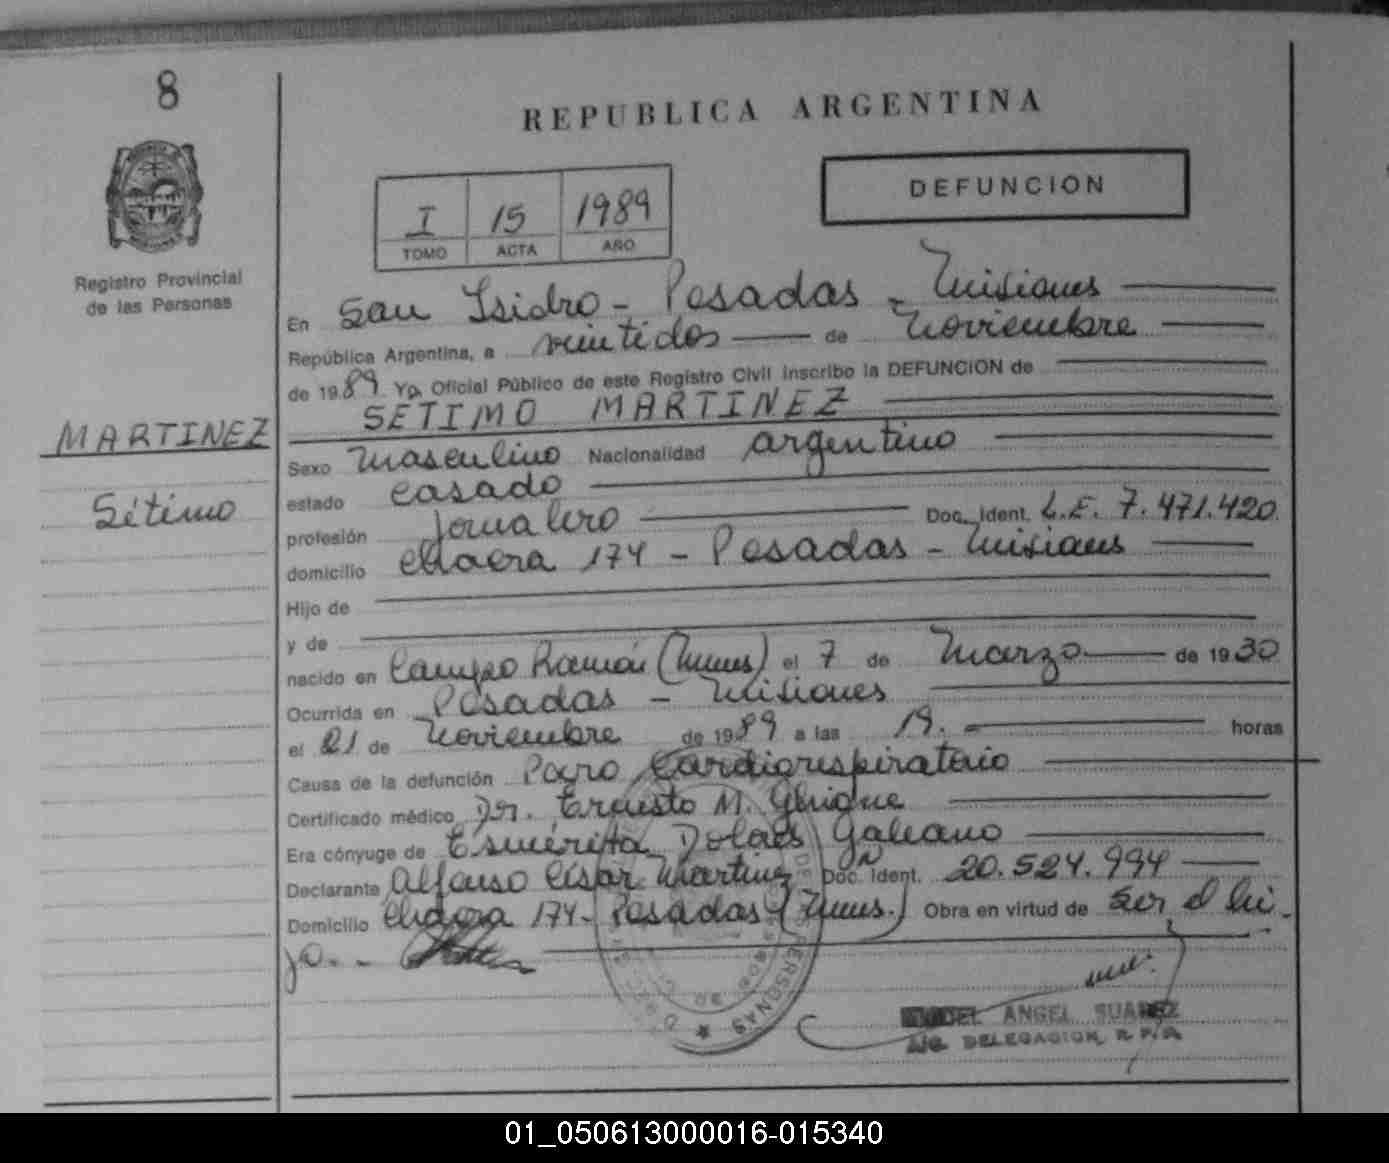 8
REPUBLICA ARGENTINA
DEFUNCION
I 15 1989
TOMO ACTA AÑO
Registro Provincial
de las Personas
En San Isidro - Posadas - Misiones
República Argentina, a veintidos de Noviembre
de 1989. Yo, Oficial Público de este Registro Civil inscribo la DEFUNCION de
SETIMO MARTINEZ
MARTINEZ
Sétimo
Sexo Masculino Nacionalidad argentino
estado casado
profesión Jornalero Doc. Ident. L.E. 7.471.420
domicilio Chacra 174 - Posadas - Misiones
Hijo de
y de
nacido en Campo Ramón (Mnes) el 7 de Marzo de 1930
Ocurrida en Posadas - Misiones
el 21 de Noviembre de 1989 a las 19. horas
Causa de la defunción Paro Cardiorespiratorio
Certificado médico Dr. Ernesto M.
Era cónyuge de Esmérita Dolores Galeano
Declarante Alfonso César Martinez Doc. Ident. 20.524.994
Domicilio Chacra 174 - Posadas (Mnes.) Obra en virtud de ser el hi-
jo.-
PERSONAS
ANGEL SUAREZ
DELEGACION R.P.P.
01_050613000016-015340